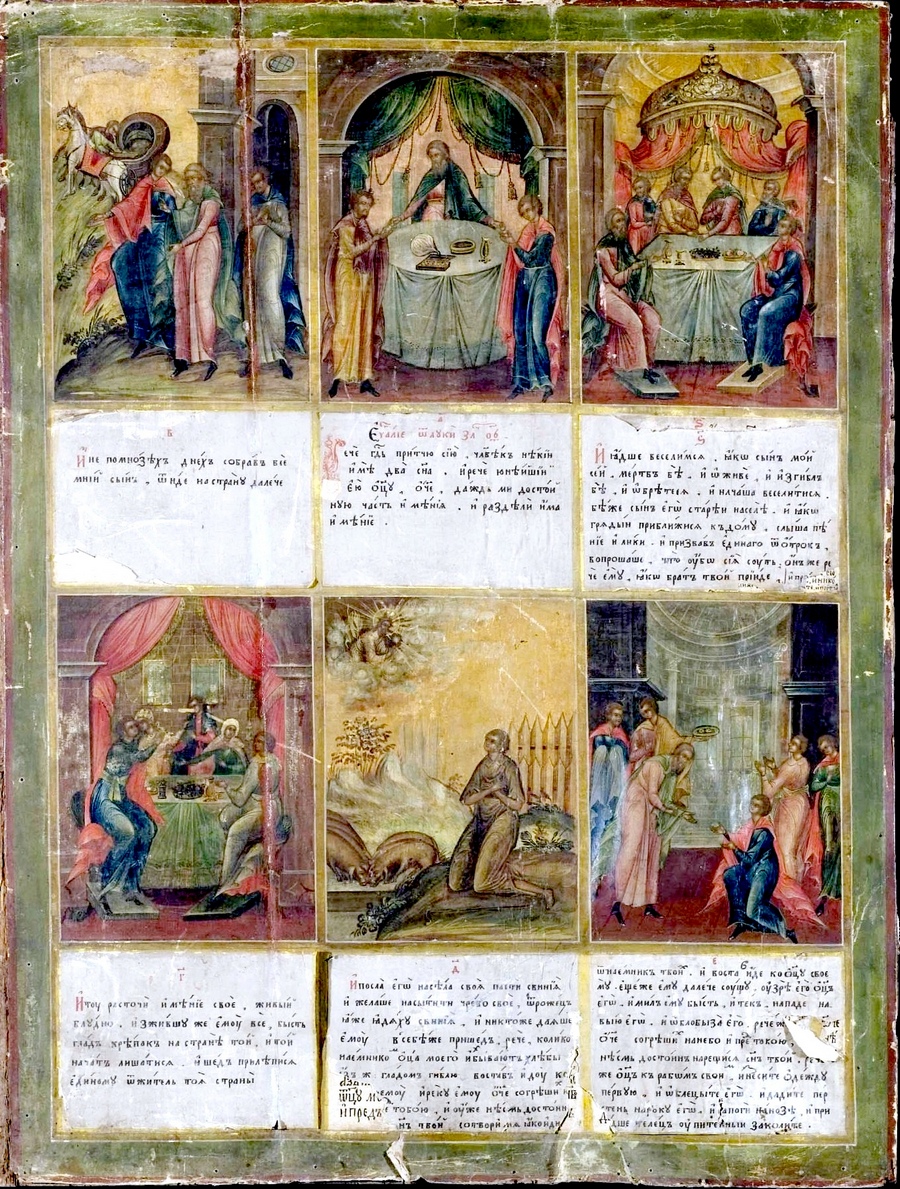 в҃
И не помнозѣхъ днехъ собравъ всѐ
мніи сынъ , ѿиде на страну далече
а҃
Еѵаліе ѿ луки зл ов҃
Рече гд҃ь притчю сїю , человѣкъ нѣкіи
имѣ два сн҃а , и рече юнѣйшіи
ею оц҃у , оч҃е , даждь ми достой
ную часть имѣнїя . и раздѣли има
имѣніе .
ѕ҃
И ядше веселимся , якѡ сынъ мой
сей , мертвъ бѣ , и ѡживе , и изгиблъ
бѣ , и ѡбрѣтеся , и начаша веселитися .
бѣ же сынъ егѡ старѣи на селѣ . и якѡ
грядыи приближися къ дому , слыша пѣ
ніе и лики . и призвавъ единаго ѿ отрокъ ,
вопрошаше , что оубѡ сія соуть . онъ же ре
че ему , якѡ братъ твой прїиде ,
г҃
И тоу расточи имѣніе своѐ , живый
блудно . изжившу же ємоу всѐ , бысть
гладъ крѣпокъ на странѣ той , и той
начатъ лишатися . и шедъ прилѣпися
единому ѿ житель тоя страны
д҃
И посла егѡ на сѐла своя пасти свинїя
и желаше насытити чрево своѐ , ѿ рожецъ
яже ядяху свинїя , и никтоже даяше
ємоу в себѣ же пришедъ , рече , колико
наемнико оц҃а моего избываютъ хлѣбы
азъ ж гладомъ гиблю воставъ идоу ко
ѿц҃у му и реку ємоу оч҃е согрѣши н
и предъ тобою , и оуже нѣсмь достоин
нъ твой сотвори мя якѡ
е҃
ѿ наемникъ твои . и воста иде ко оц҃у свое
му . еще же ему далече соущу . оузрѣ его оц҃ъ
егѡ . и милъ ему бысть , и текъ , нападе на
выю егѡ . и ѡблобыза его . рече ж
оч҃е согрѣши на небо и пре тобою ,
нѣсмь достоинъ нарещися сн҃ъ твои , рече
же оц҃ъ к рабѡмъ свои . изнесите одежду
первую . и ѡблецыте егѡ . и дадите пер
тень на року егѡ . и сапоги на нозѣ . и при
ведше телецъ оупителныи заколите .